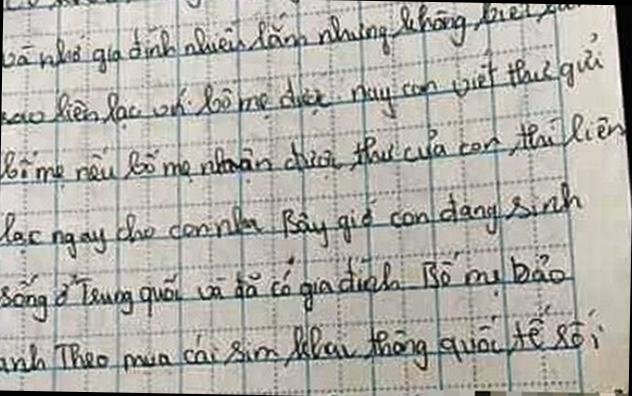 và nhớ gia đình nhiều lắm nhưng không biết
sao liên lạc với bố mẹ được nay con viết thư gửi
bố mẹ nếu bố mẹ nhận được thư của con thì liên
lạc ngay cho con nha Bây giờ con đang sinh
sống ở Trung quốc và đã có gia đình Bố mẹ bảo
anh Theo mua cái sim khai thông quốc tế rồi